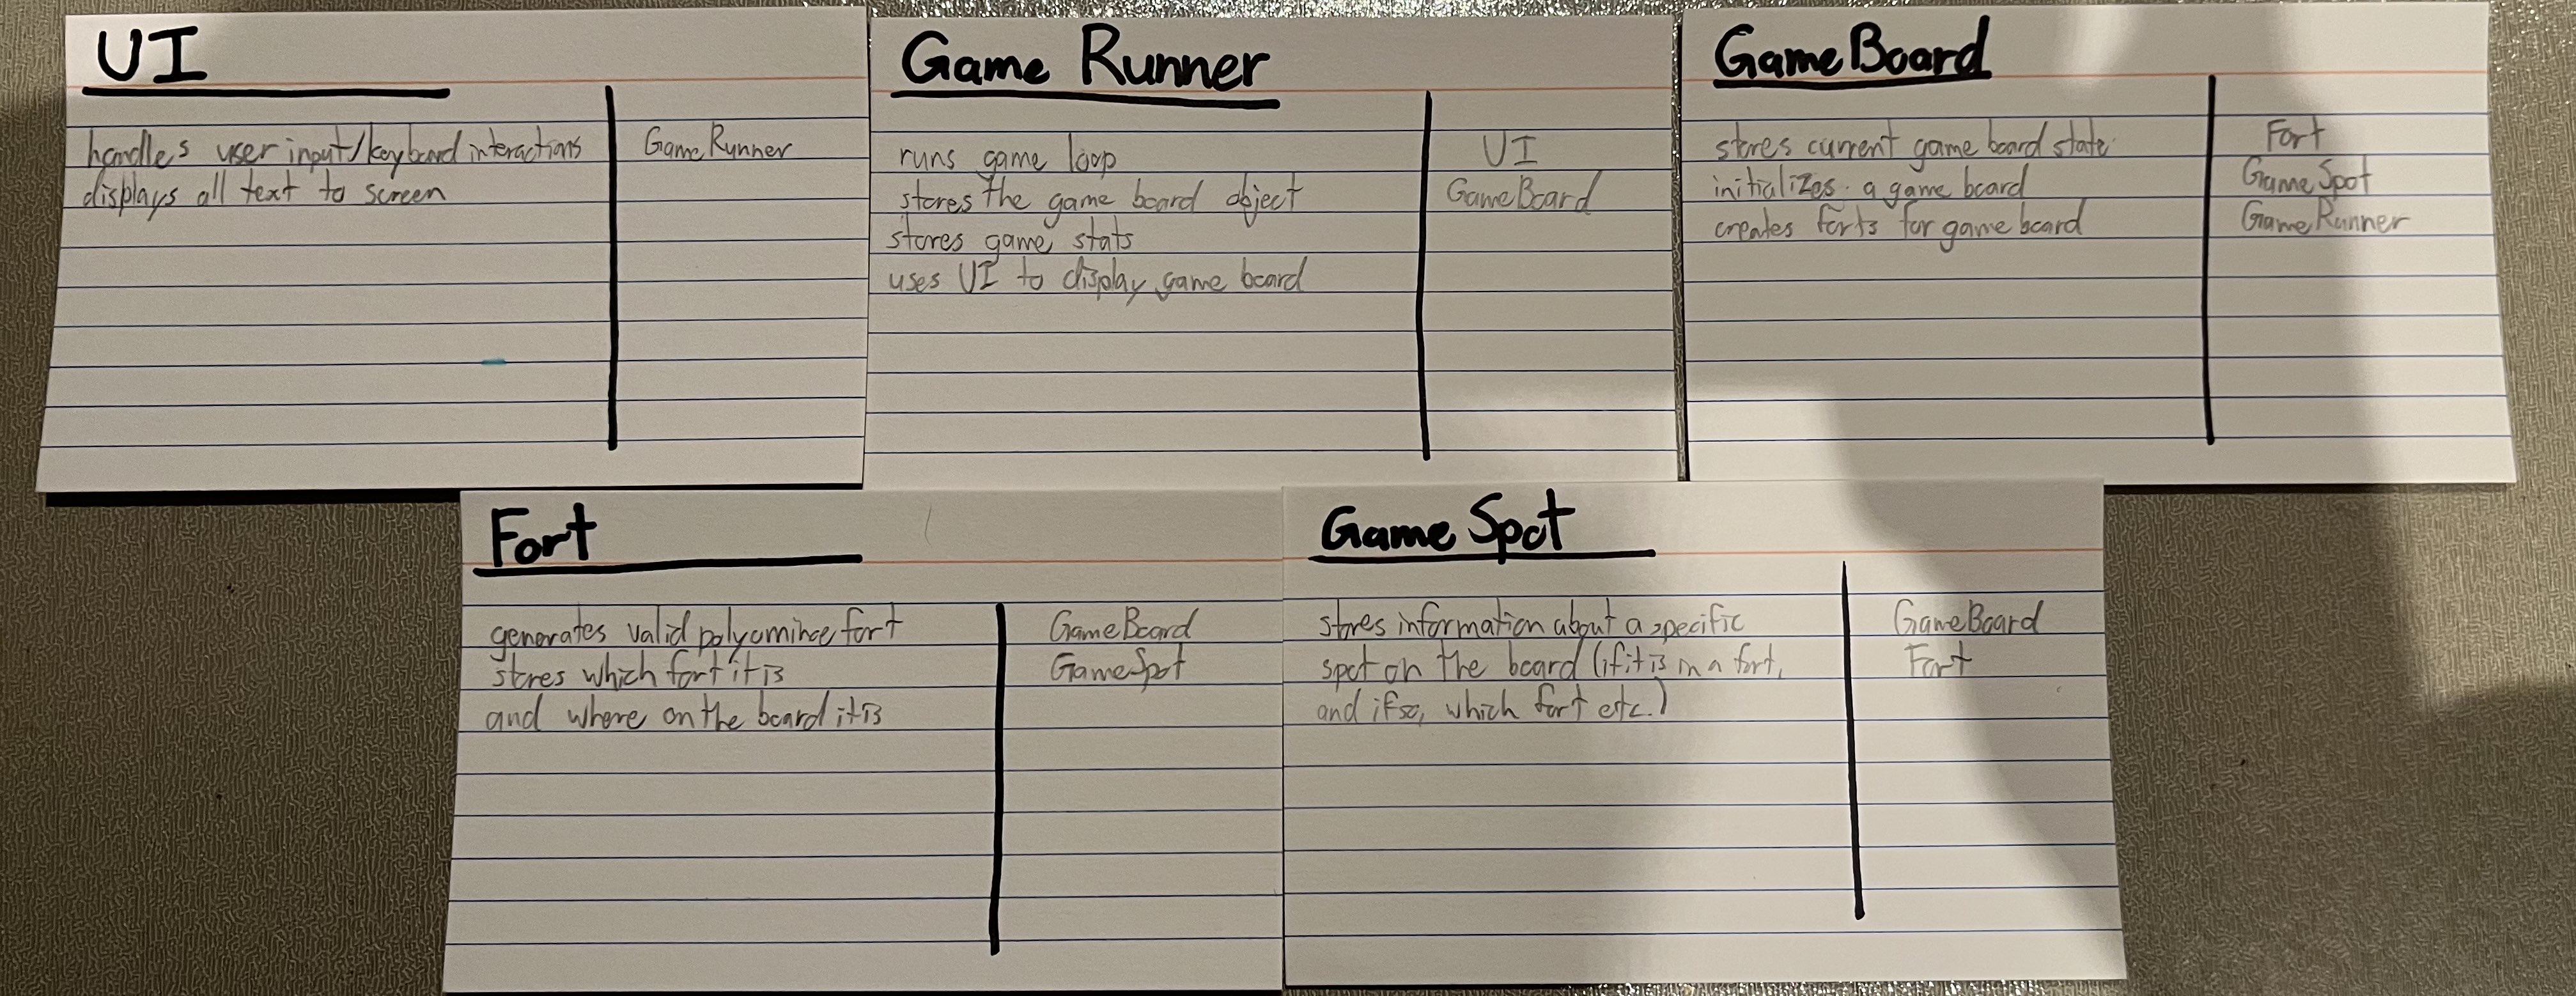 UI
handles user input/keyboard interactions
displays all text to screen
GameRunner
Game Runner
runs game loop
stores the game board object
stores game stats
uses UI to display game board
UI
GameBoard
GameBoard
stores current game board state
initializes a game board
creates forts for game board
Fort
GameSpot
GameRunner
Fort
generates valid polyominoe fort
stores which fort it is
and where on the board it is
GameBoard
GameSpot
Game Spot
stores information about a specific
spot on the board (if it is in a fort,
and if so, which fort etc.)
GameBoard
Fort